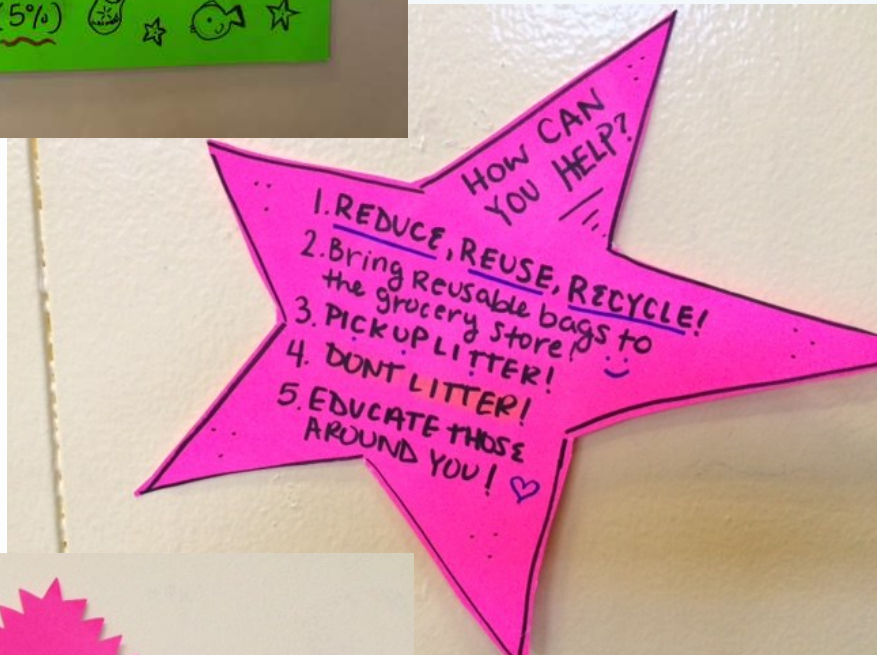 (5%)
HOW CAN
YOU HELP?
1. REDUCE, REUSE, RECYCLE!
2. Bring Reusable bags to
the grocery store!
3. PICK UP LITTER!
4. DONT LITTER!
5. EDUCATE THOSE
AROUND YOU!